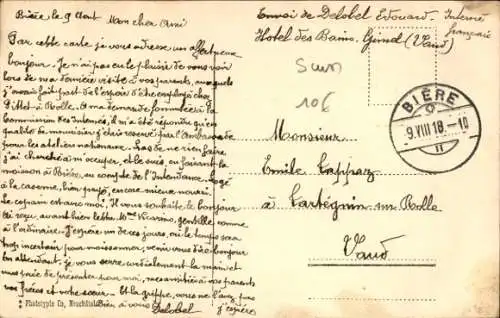 Bière le 9 Aout Mon cher Ami
Par cette carte je vous adresse un affectueux
bonjour. Je n'ai pas eu le plaisir de vous voir
lors de ma dernière visite à vos parents, auxquels
j'avais fait part de l'espoir d'être employé chez
à Rolle. A ma demande formulée à la
Commission des Internés, il m'a été répondu qu'en
qualité de menuisier j'étais réservé par l'Ambassade
pour les ateliers nationaux. Las de ne rien faire,
j'ai cherché à m'occuper, et le suis, en faisant la
maison à Bière, au compte de l'Intendance. Logé
à la caserne, bien payé, encore mieux nourri,
le copain est ravi
reçu, avant hier lettre. Mme gentille comme
à l'ordinaire. J'espère un de ces jours, où le temps sera
trop incertain pour moissonner, venir vous dire bonjour
En attendant, je vous serre cordialement la main et
vous prie de présenter pour moi, mes amitiés à vos parents
vos frères et votre sœur. Et la grippe, vous ne l'avez pas
Bien à vous Delobel j'espère
Phototypie Co, Neuchâtel
Envoi de Delobel Edouard. Interné
français
Hôtel des Bains. Gimel (Vaud)
106
BIÈRE
9.VIII 18.-10
Monsieur
Emile Cappaz
à Tartegnin sur Rolle
Vaud